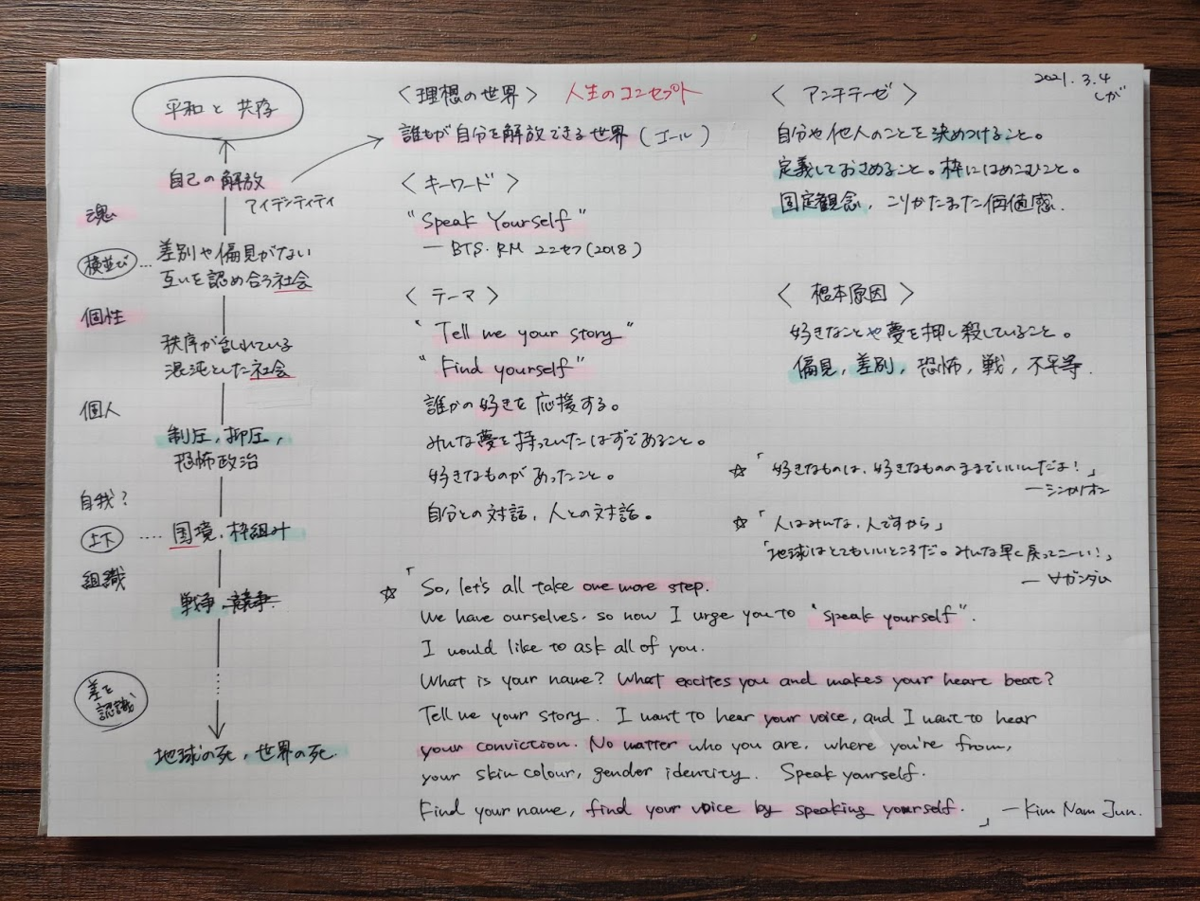 2021.3.4
しが
平和と共存
自己の解放
アイデンティティ
魂
横並び…
差別や偏見がない
互いを認め合う社会
個性
秩序が乱れている
混沌とした社会
個人
制圧,抑圧,
恐怖政治
自我?
上下
….国境,枠組み
組織
戦争,競争
差を
認識
地球の死,世界の死.
〈理想の世界〉 人生のコンセプト
誰もが自分を解放できる世界(ゴール)
〈キーワード〉
"Speak Yourself"
— BTS・RM ユニセフ(2018)
〈テーマ〉
"Tell me your story"
"Find yourself"
誰かの好きを応援する。
みんな夢を持っていたはずであること。
好きなものがあったこと。
自分との対話,人との対話。
〈アンチテーゼ〉
自分や他人のことを決めつけること。
定義しておさめること。枠にはめこむこと。
固定観念,こりかたまった価値感.
〈根本原因〉
好きなことや夢を押し殺していること。
偏見,差別,恐怖,戦,不平等.
☆「好きなものは、好きなもののままでいいんだよ!」
—シンカリオン
☆「人はみんな、人ですから」
「地球はとてもいいところだ。みんな早く戻ってこーい!」
—∀ガンダム
☆「So, let's all take one more step.
We have ourselves, so now I urge you to "speak yourself".
I would like to ask all of you.
What is your name? What excites you and makes your heart beat?
Tell me your story. I want to hear your voice, and I want to hear
your conviction. No matter who you are, where you're from,
your skin colour, gender identity. Speak yourself.
Find your name, find your voice by speaking yourself.」—Kim Nam Jun.